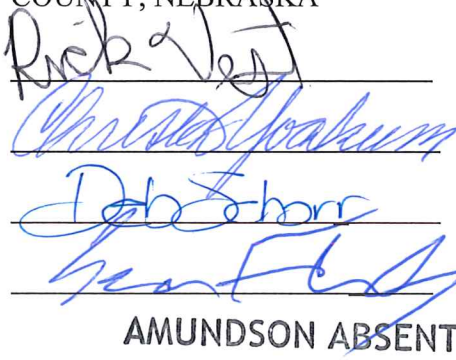 COUNTY, NEBRASKA
Rick Vest
Christa Yoakum
Deb Schorr
Sean Flowerday
AMUNDSON ABSENT